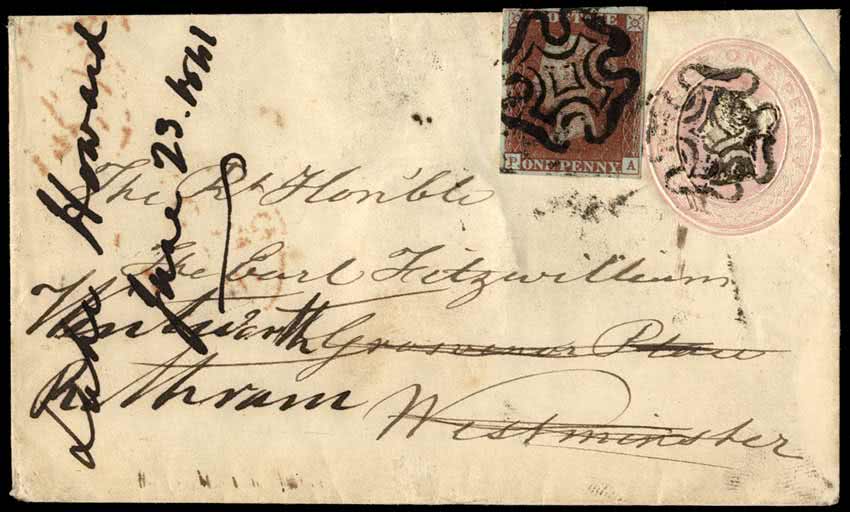 POSTAGE
P ONE PENNY A
ONE PENNY
The Rt Honble
The Earl Fitzwilliam
Wentworth Grosvenor Place
Rothram Westminster
Howard
June 23. 1841